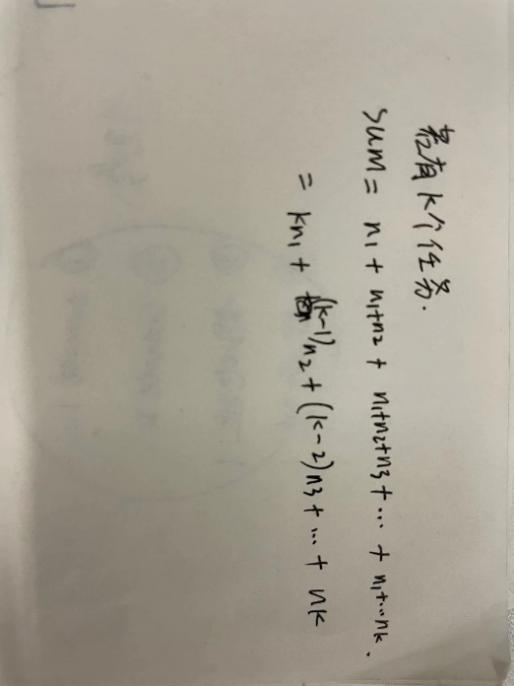 若有k个任务.
sum = n1 + n1+n2 + n1+n2+n3+… + n1+…nk.
= kn1 + (k-1)n2 + (k-2)n3 + … + nk